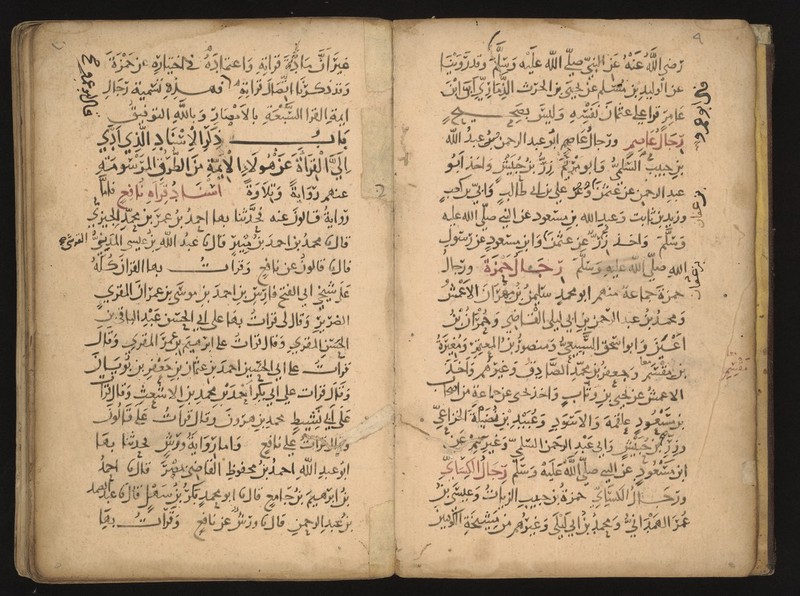 رضي الله عنه عن النبي صلى الله عليه وسلم وقد روينا
عن الوليد بن مسلم عن يحيى بن الحرث الذماري ان ابن
عامر قرا على عثمان نفسه وليس بصحيح
رجال عاصم ورجال عاصم ابو عبد الرحمن عبد الله
بن حبيب السلمي وابو مريم زر بن حبيش واخذ ابو
عبد الرحمن عن عثمن وعن علي بن ابي طالب وابي بن كعب
وزيد بن ثابت وعبد الله بن مسعود عن النبي صلى الله عليه
وسلم واخذ زر عن عثمن وابن مسعود عن رسول
الله صلى الله عليه وسلم رجال حمزة ورجال
حمزة جماعة منهم ابو محمد سليمن بن مهران الاعمش
ومحمد بن عبد الرحمن بن ابي ليلى القاضي وحمران بن
اعين وابو اسحق السبيعي ومنصور بن المعتمر ومغيرة
بن مقسم وجعفر بن محمد الصادق وغيرهم واخذ
الاعمش عن يحيى بن وثاب واخذ يحيى عن جماعة من اصحاب
بن مسعود علقمة والاسود وعبيد بن نضيلة الخزاعي
وزر بن حبيش وابي عبد الرحمن السلمي وغيرهم عن
ابن مسعود عن النبي صلى الله عليه وسلم رجال الكسائي
ورجال الكسائي حمزة بن حبيب الزيات وعيسى بن
عمر الهمداني ومحمد بن ابي ليلى وغيرهم من مشيخة الكوفيين
قال ابو عمرو
بن عفان
بن عفان
مقسم
غير ان مادة قراته واعتماده في اختياره عن حمزة
وقد ذكرنا اتصال قراته فهذه تسمية رجال
ايمة القرا السبعة بالاختصار وبالله التوفيق
باب ذكر الاسناد الذي ادى
الي القراة عن هولاء الايمة من الطرق المرسومة
عنهم رواية وتلاوة اسناد قراه نافع فاما
رواية قالون عنه فحدثنا بها احمد بن عمر بن محمد الجيزي
قال محمد بن احمد بن منير قال عبد الله بن عيسى المدني
قال قالون عن نافع وقرات بها القران كله
على شيخي ابي الفتح فارس بن احمد بن موسى بن عمران المقري
الضرير وقال لي قرات بها على ابي الحسن عبد الباقي بن
الحسن المقري وقال قرات على ابرهيم بن عمر المقري وقال
قرات على ابي الحسين احمد بن عثمان بن جعفر بن بويان
وقال قرات على ابي بكر احمد بن محمد بن الاشعث وقال قرا
على ابي نشيط محمد بن هرون وقال قرات على قالون
وقال قرات على نافع واما رواية ورش فحدثنا بها
ابو عبد الله احمد بن محفوظ القاضي بمصر قال احمد
بن ابرهيم بن جامع قال ابو محمد بكر بن سهل قال عبد الصمد
بن عبد الرحمن قال ورش عن نافع وقرات بها
قال ابو عمرو